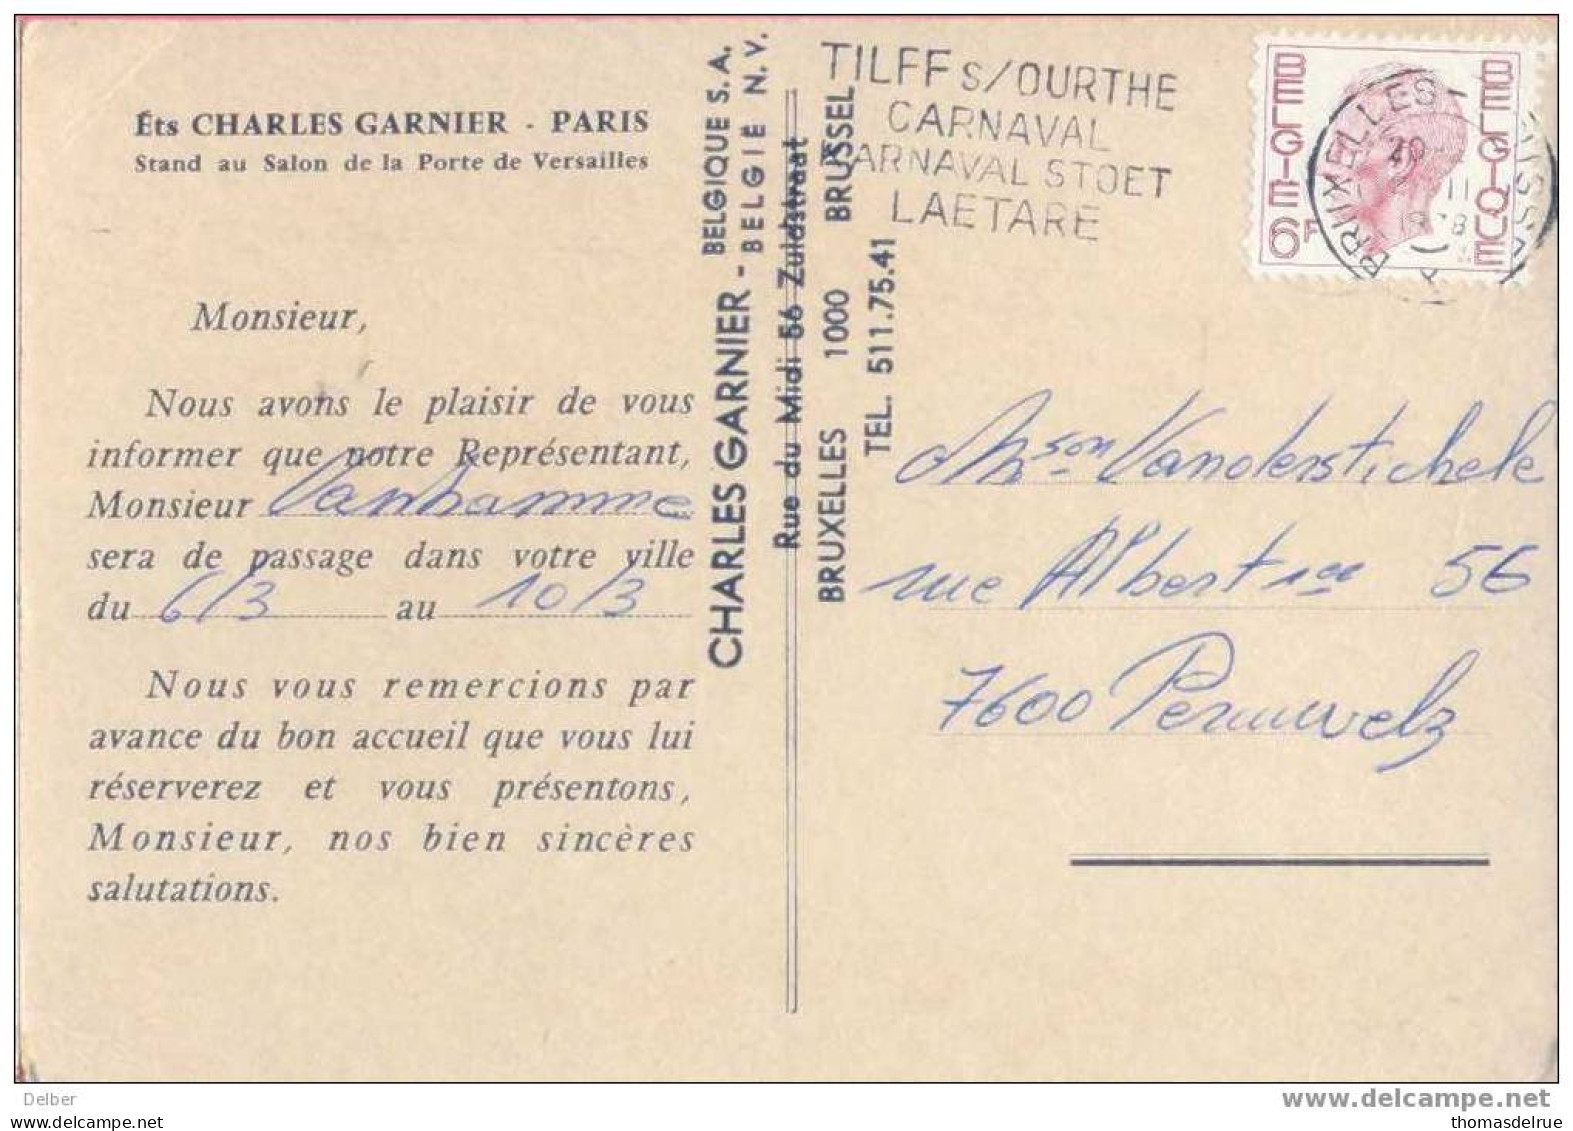 Éts CHARLES GARNIER - PARIS
Stand au Salon de la Porte de Versailles
Monsieur,
Nous avons le plaisir de vous
informer que notre Représentant,
Monsieur Vanhamme
sera de passage dans votre ville
du 6/3 au 10/3
Nous vous remercions par
avance du bon accueil que vous lui
réserverez et vous présentons,
Monsieur, nos bien sincères
salutations.
CHARLES GARNIER - BELGIQUE S.A.
BELGIË N.V.
Rue du Midi 56 Zuidstraat
BRUXELLES 1000 BRUSSEL
TEL. 511.75.41
TILFF S/OURTHE
CARNAVAL
ARNAVAL STOET
LAETARE
BELGIE 6F BELGIQUE
BRUXELLES
Mson Vanderstichele
rue Albert 1er 56
7600 Peruwelz
Delber
www.delcampe.net
https://www.delcampe.net
thomasdelrue